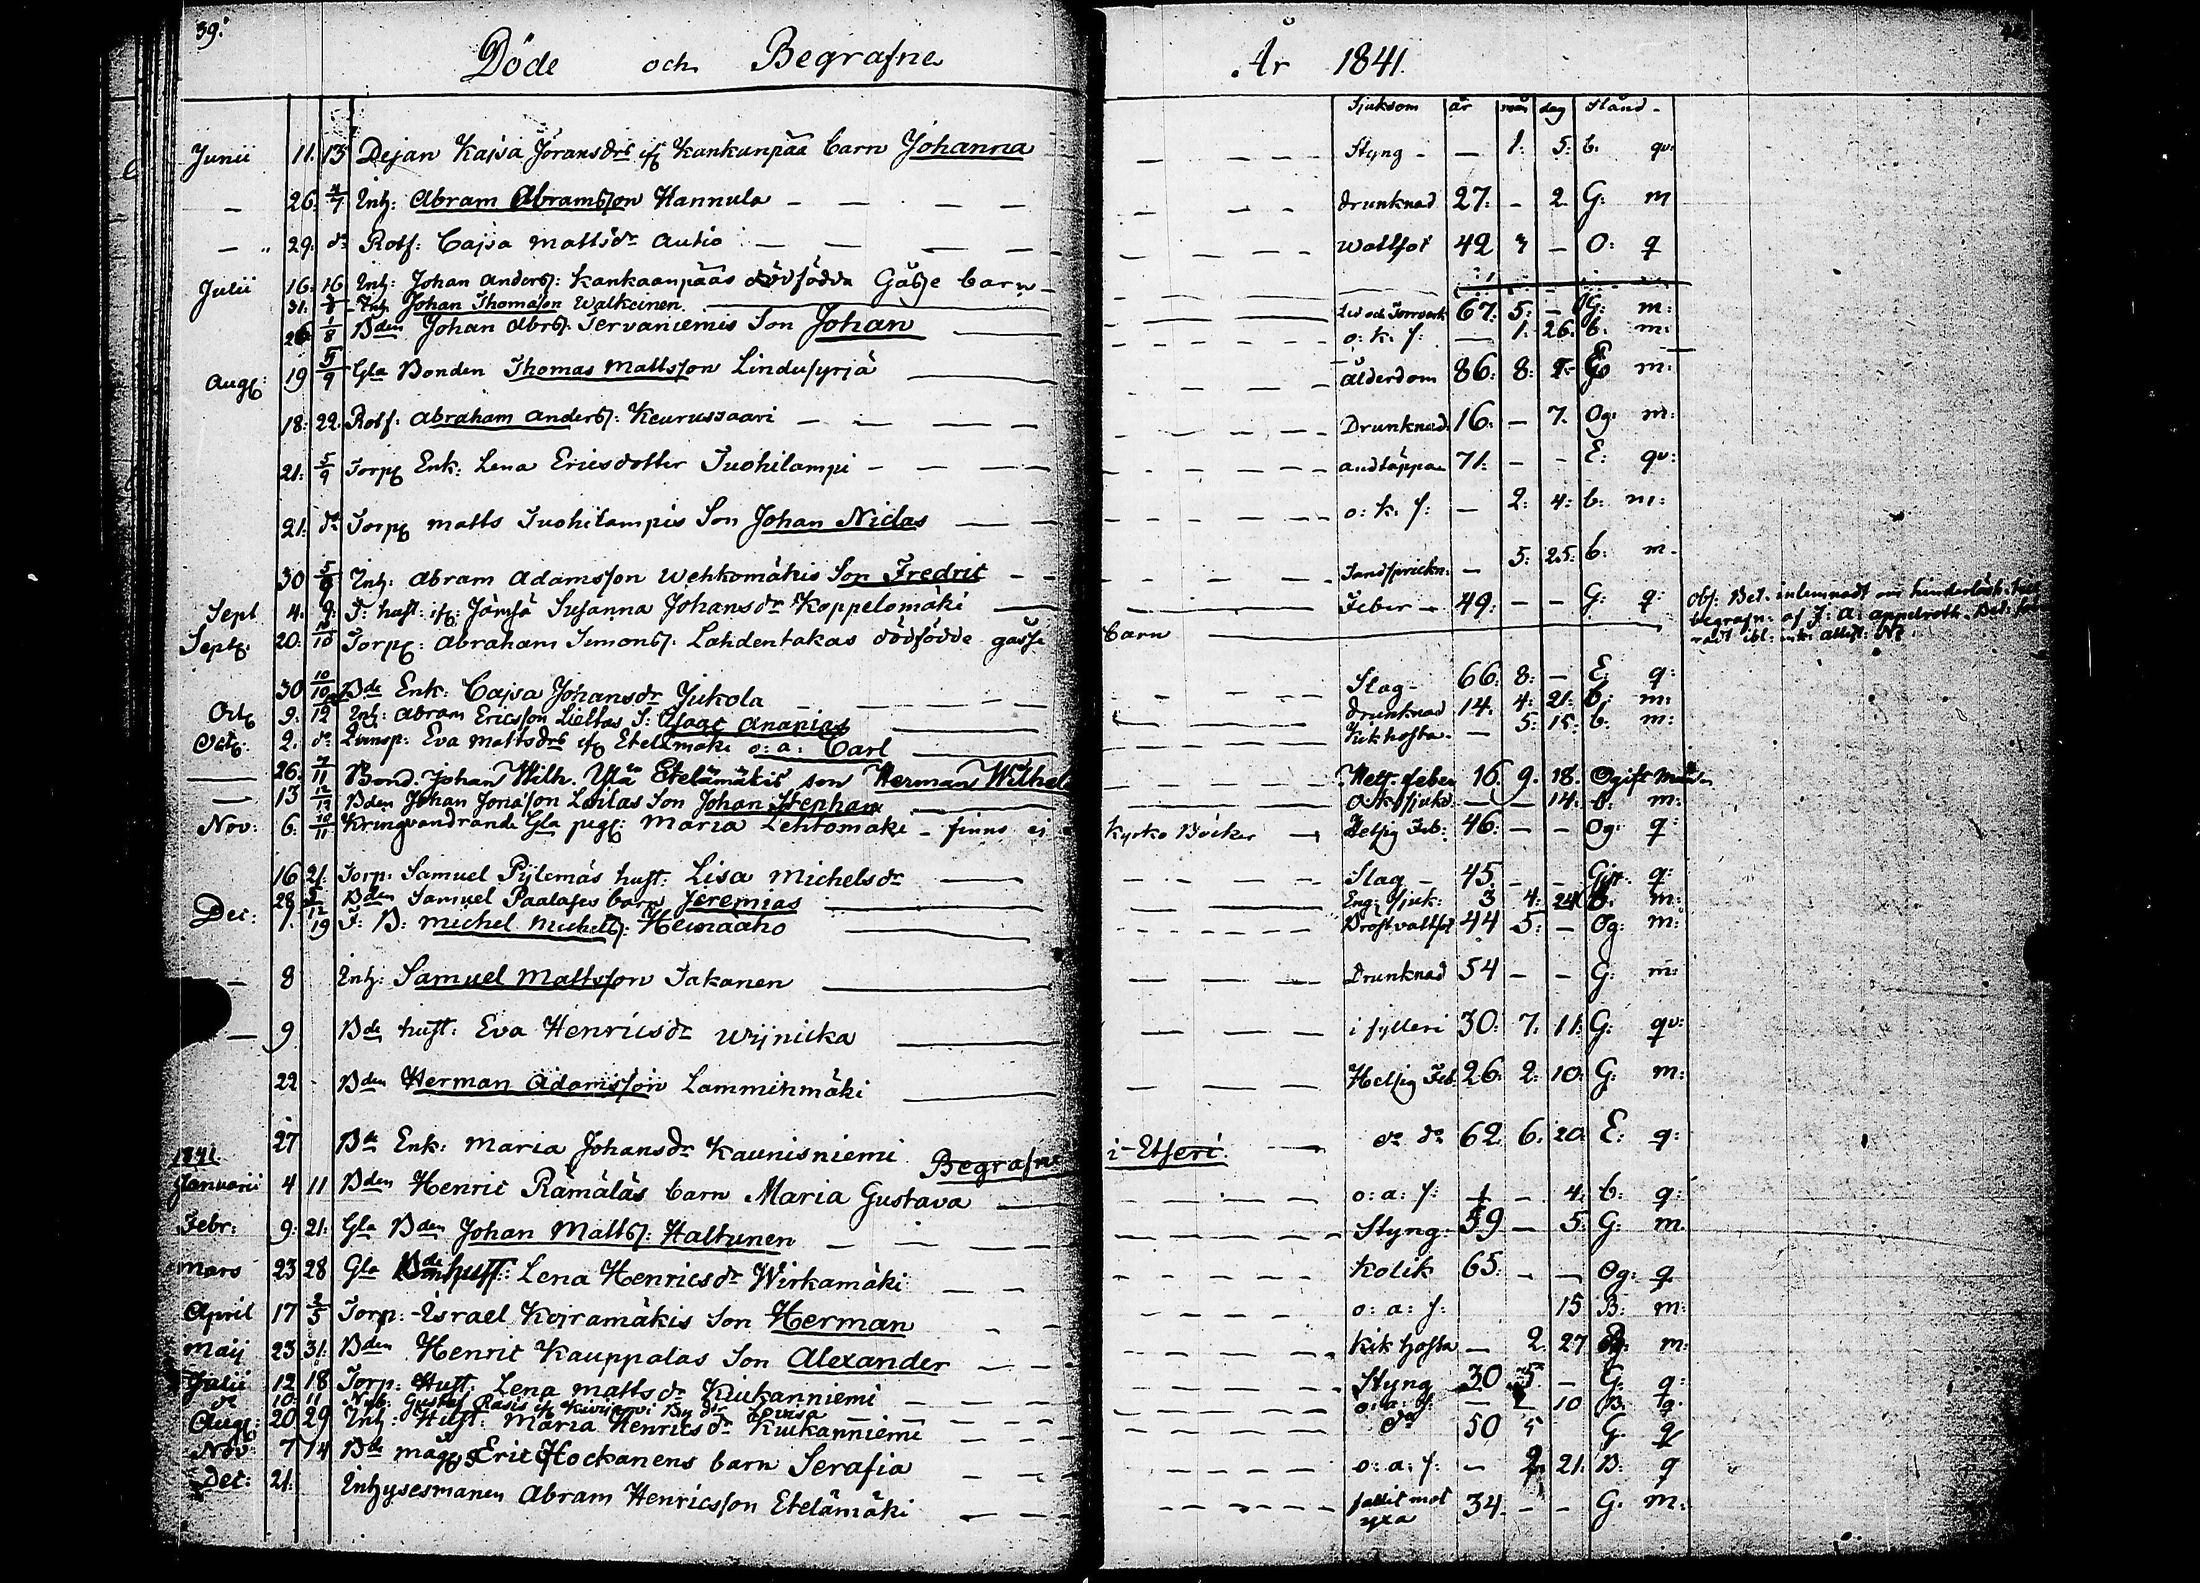 39.
Döde och Begrafne År 1841.
Sjukdom år mån dag Stånd
Junii 11. 13 Dejan Kajsa Jöransdr ifr Kankanpää barn Johanna — Styng — 1: 5: b: qv:
— 26: 4/7 Inh: Abram Abramsson Hannula — drunknad 27: - 2 G: m
— 29: do Rotf: Cajsa Mattsdr Autio — Wattsot 42 3 — O: q
Julii 16: 16 Inh: Johan Anders: Kankaanpääs dödfödda Gåsse barn
31: Inh Johan Thomason Walkeinen — 67: 5: — G: m:
26 1/8 Bden Johan Abrs: Tervaniemis Son Johan — o: k: s: — 1: 26: b: m:
Aug: 19 5/9 Gla Bonden Thomas Mattsson Lindusyrjä — ålderdom 86: 8: m:
18: 22. Rotf: Abraham Anders: Keurussaari — Drunknad 16: — 7. Og: m:
21: 5/9 Torp Enk: Lena Ericsdotter Tuohilampi — andtäppa 71: - - E: qv:
21: do Torp Matts Tuohilampis Son Johan Niclas — o: k: s: — 2: 4: b: m:
30 Inh: Abram Adamsson Wehkomäkis Son Fredric — — 5: 25: b: m.
Sept 4. 9: hust: ifr: Jämsä Susanna Johansdr Koppelomäki — Feber — 49: - - G: q: Obs: Bet. inlemnadt om
begrafn: af J: A: Appelroth. Bet:
Sept: 20: Torp: Abraham Simons: Lahdentakas dödfödde gåsse barn
30 10/10 Bde Enk: Cajsa Johansdr Jukola — Slag — 66: 8: — E: q:
Oct 9: 12 Inh: Abram Ericsson S: Isaac Ananias — drunknad 14: 4: 21: b: m:
Oct: 2. do Eva Mattsdrs ifr Etelämäki o: a: Carl — Kikhosta — 5: 15: b: m:
— 26. 7/11 Bond. Johan Wilh. Ylä Etelämäkis son Herman Wilhel — feber 16 9. 18. Ogift
— 13 Bden Johan Jonasson Loilas Son Johan Stephan — — — 14: b: m:
Nov: 6: 10/11 Kringvandrande Gla pig: Maria Lehtomäki — finns ej kyrko Böcker — Hetsig Feb: 46: — — Og: q:
16 21: Torp: Samuel Pylemäs hust: Lisa Michelsdr — Slag — 45: - - q:
28 Bden Samuel Paalases barn Jeremias — sjuk: 3 4: 24 b: m:
Dec: 1. 12/19 B: Michel Michels: Heinäaho — Bröstvattsot 44 5: — Og: m:
— 8 Inh: Samuel Mattsson Takanen — Drunknad 54 - - G: m:
— 9 Bde hust: Eva Henricsdr — i fylleri 30: 7: 11: G: qv:
22 - Bden Herman Adamsson Lamminmäki — Hetsig Feb. 26: 2: 10: G: m:
27 Bde Enk: Maria Johansdr Kaunisniemi Begrafne i Etseri — do do 62 6: 20 E: q:
1841
Januarii 4 11 Bden Henric Rämäläs barn Maria Gustava — o: a: s: — 4: b: q:
Febr: 9: 21: Gla Bden Johan Matts: Haltunen — Styng: 59 — 5: G: m.
Mars 23 28 Gla hust: Lena Henricsdr Wirkamäki — Kolik 65: - - Og: q
April 17 2/5 Torp: Israel Koiramäkis Son Herman — o: a: s: 15 B: m:
Maij 23 31: Bden Henric Kauppalas Son Alexander — Kikhosta — 2 27 m:
Julii 12 18 Torp: Hust: Lena Mattsdr Kiukanniemi — Styng 30 5 — G: q:
do 10 11 Gustaf Rasis Lovisa — o: a: s: — 10 B: q:
Aug: 20 29 Inh: Hust: Maria Henricsdr Kiukanniemi — do 50 5 G: q
Nov: 7 14 Bde måg Eric Hockanens barn Serafia — o: a: s: — 2 21: B: q
Dec: 21: Inhysesmannen Abram Henricsson Etelämäki — fallit mot yxa 34 - - G: m: